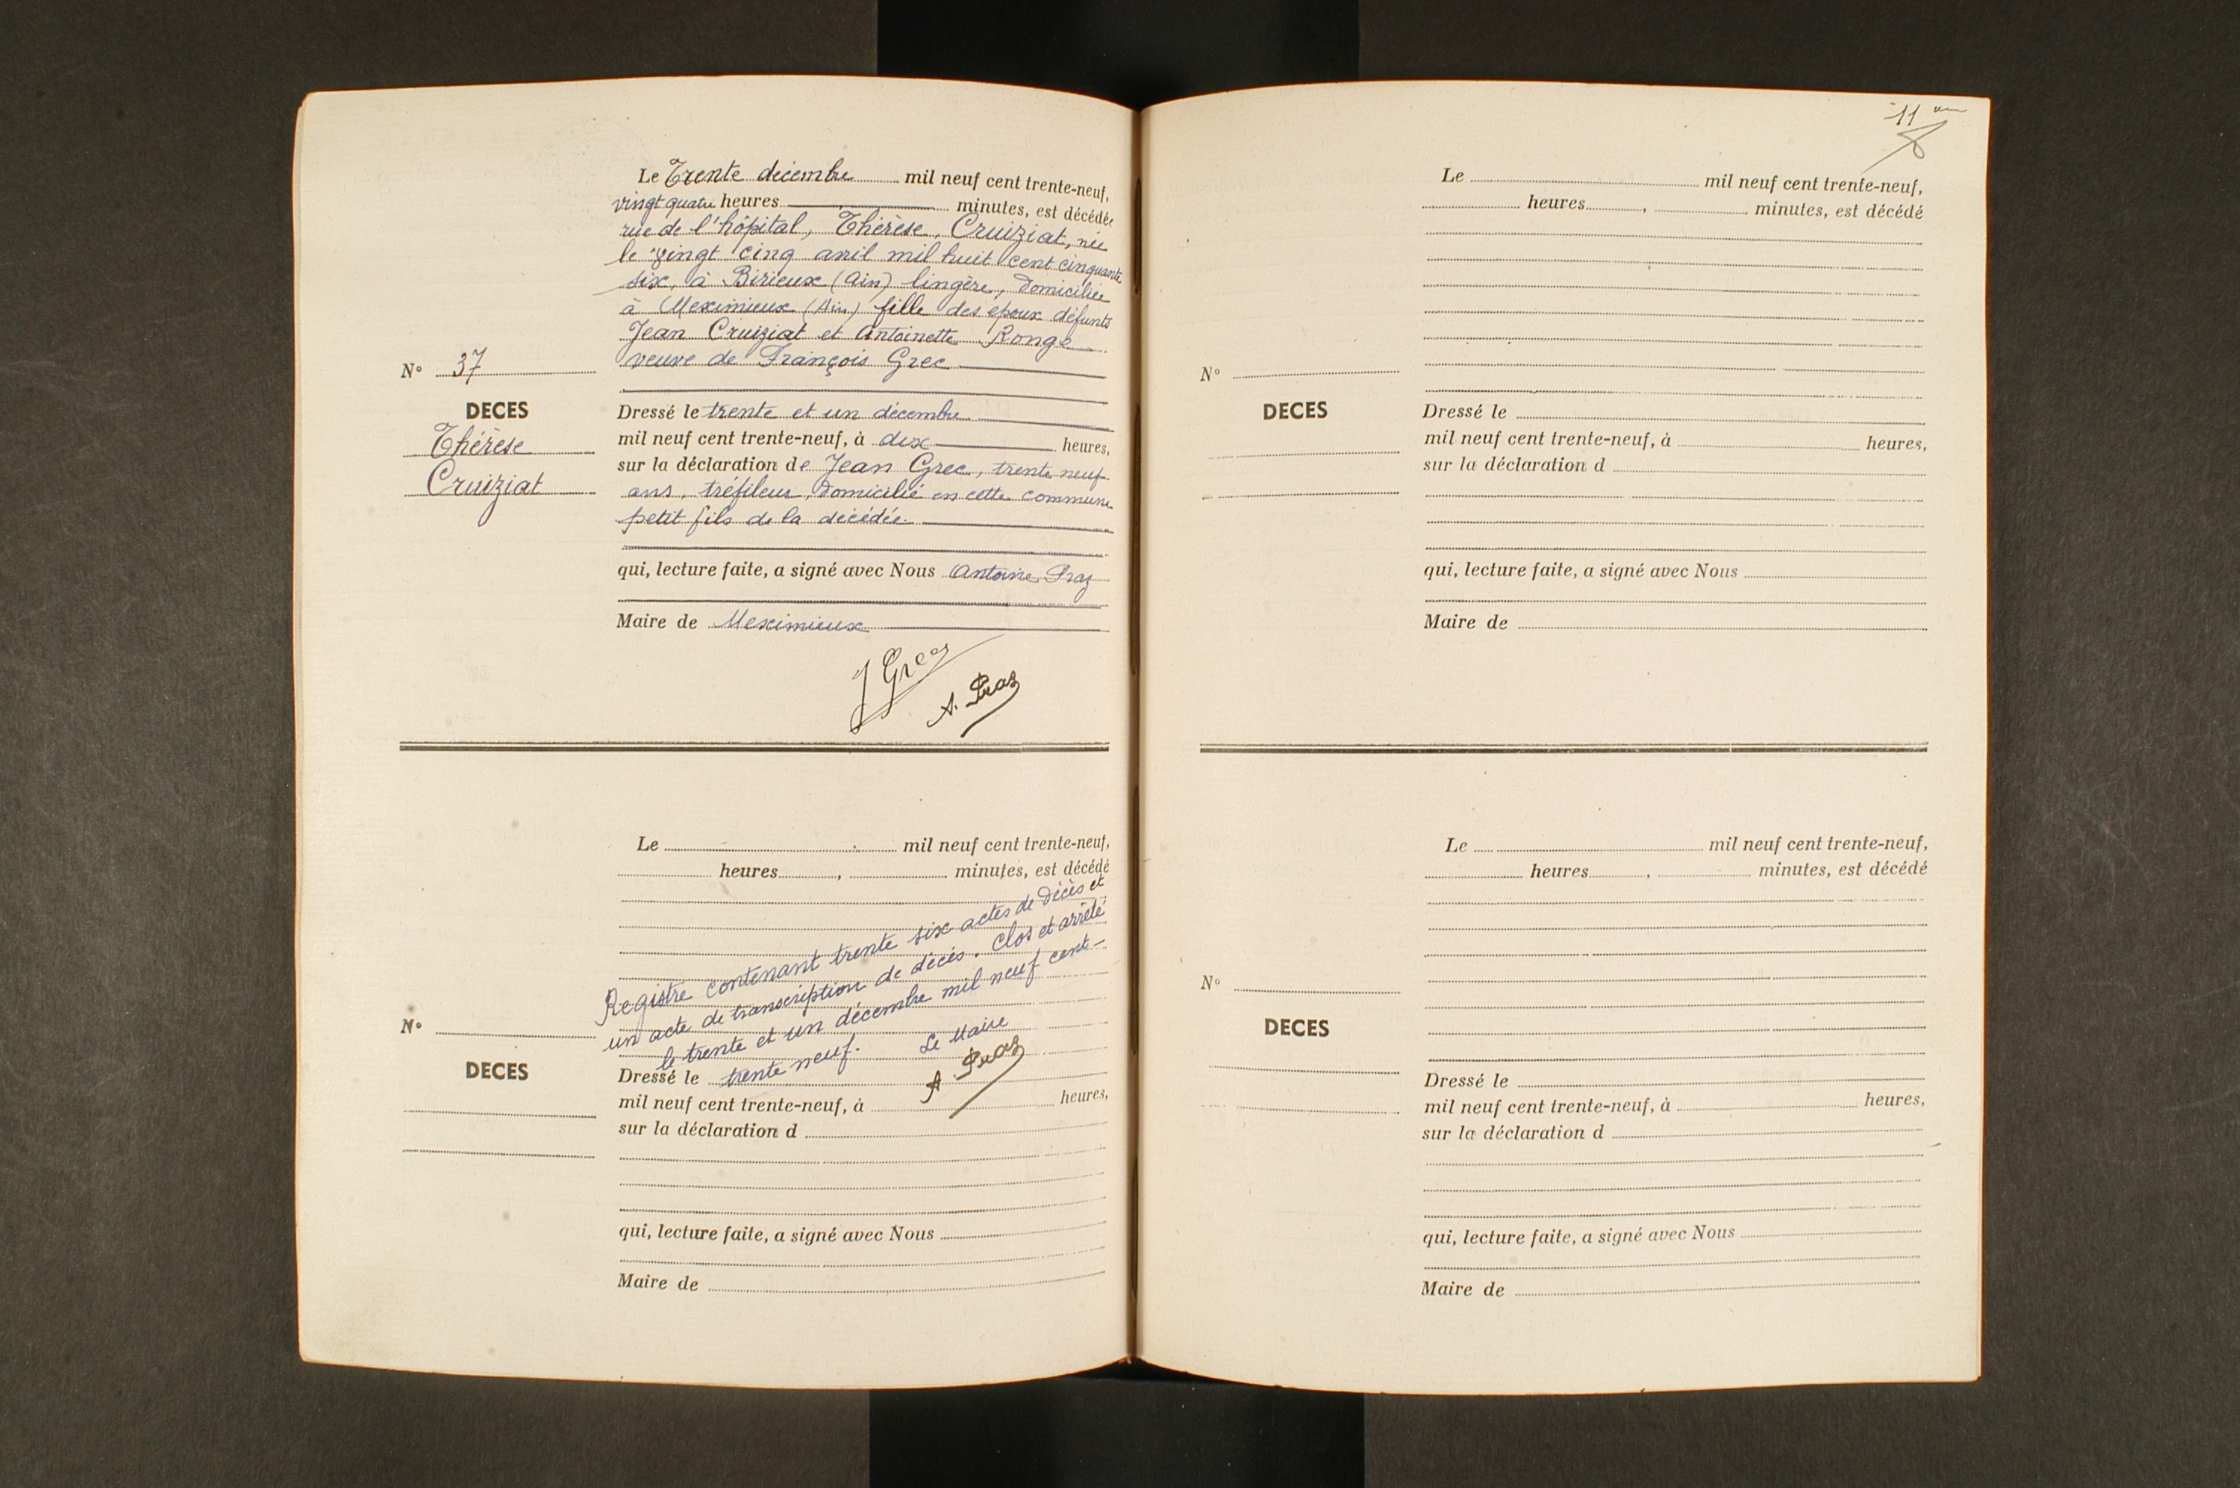 Le Trente décembre mil neuf cent trente-neuf,
vingt quatre heures minutes, est décédée
rue de l'hôpital, Thérèse, Cruiziat, née
le vingt cinq avril mil huit cent cinquante
six, à Birieux (Ain) lingère, domiciliée
à Meximieux (Ain) fille des époux défunts
Jean Cruiziat et Antoinette Ronge
veuve de François Grec
N° 37
DECES
Thérèse
Cruiziat
Dressé le trente et un décembre
mil neuf cent trente-neuf, à dix heures,
sur la déclaration de Jean Grec, trente neuf
ans, tréfileur, domicilié en cette commune
petit fils de la décédée.
qui, lecture faite, a signé avec Nous Antoine Praz
Maire de Meximieux
J Grec
A. Praz
Le mil neuf cent trente-neuf,
heures , minutes, est décédé
Registre contenant trente six actes de décès et
un acte de transcription de décès. Clos et arrêté
le trente et un décembre mil neuf cent-
trente neuf. Le Maire
A. Praz
N°
DECES
Dressé le
mil neuf cent trente-neuf, à heures,
sur la déclaration d
qui, lecture faite, a signé avec Nous
Maire de
11
Le mil neuf cent trente-neuf,
heures , minutes, est décédé
N°
DECES
Dressé le
mil neuf cent trente-neuf, à heures,
sur la déclaration d
qui, lecture faite, a signé avec Nous
Maire de
Le mil neuf cent trente-neuf,
heures , minutes, est décédé
N°
DECES
Dressé le
mil neuf cent trente-neuf, à heures,
sur la déclaration d
qui, lecture faite, a signé avec Nous
Maire de